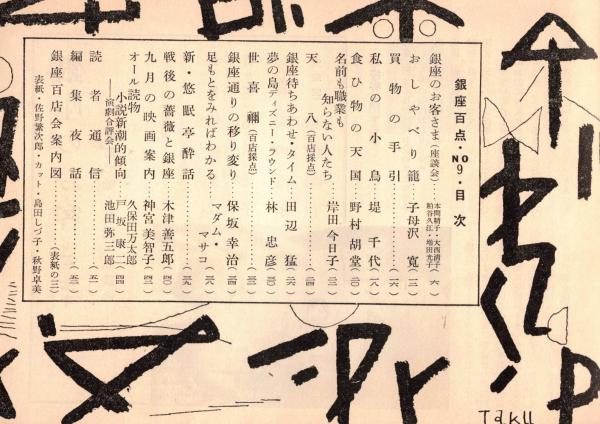 銀座百点・NO9・目次
銀座のお客さま（座談会） 本間精子・大西清子 粕谷久江・増田充子 六
おしゃべり籠 子母沢寛（一二）
買物の手引（一六）
私の小鳥 堤千代（一八）
食ひ物の天国 野村胡堂（二〇）
名前も職業も
知らない人たち 岸田今日子（二二）
天八（百店採点）（二四）
銀座待ちあわせ・タイム 田辺猛（二六）
夢の島ディズニー・ラウンド 林忠彦（三〇）
世喜禰（百店採点）
銀座通りの移り変り 保坂幸治
足もとをみればわかる マダム・マサコ
新・悠眠亭酔話
戦後の薔薇と銀座 木津善五郎（四〇）
九月の映画案内 神宮美智子（四二）
オール読物
小説新潮的傾向 久保田万太郎 戸坂康二 池田弥三郎（四四）
――演劇合評会――
読者通信（五一）
編集夜話（五二）
銀座百店会案内図（表紙の三）
表紙・佐野繁次郎・カット・島田しづ子・秋野卓美
Taku